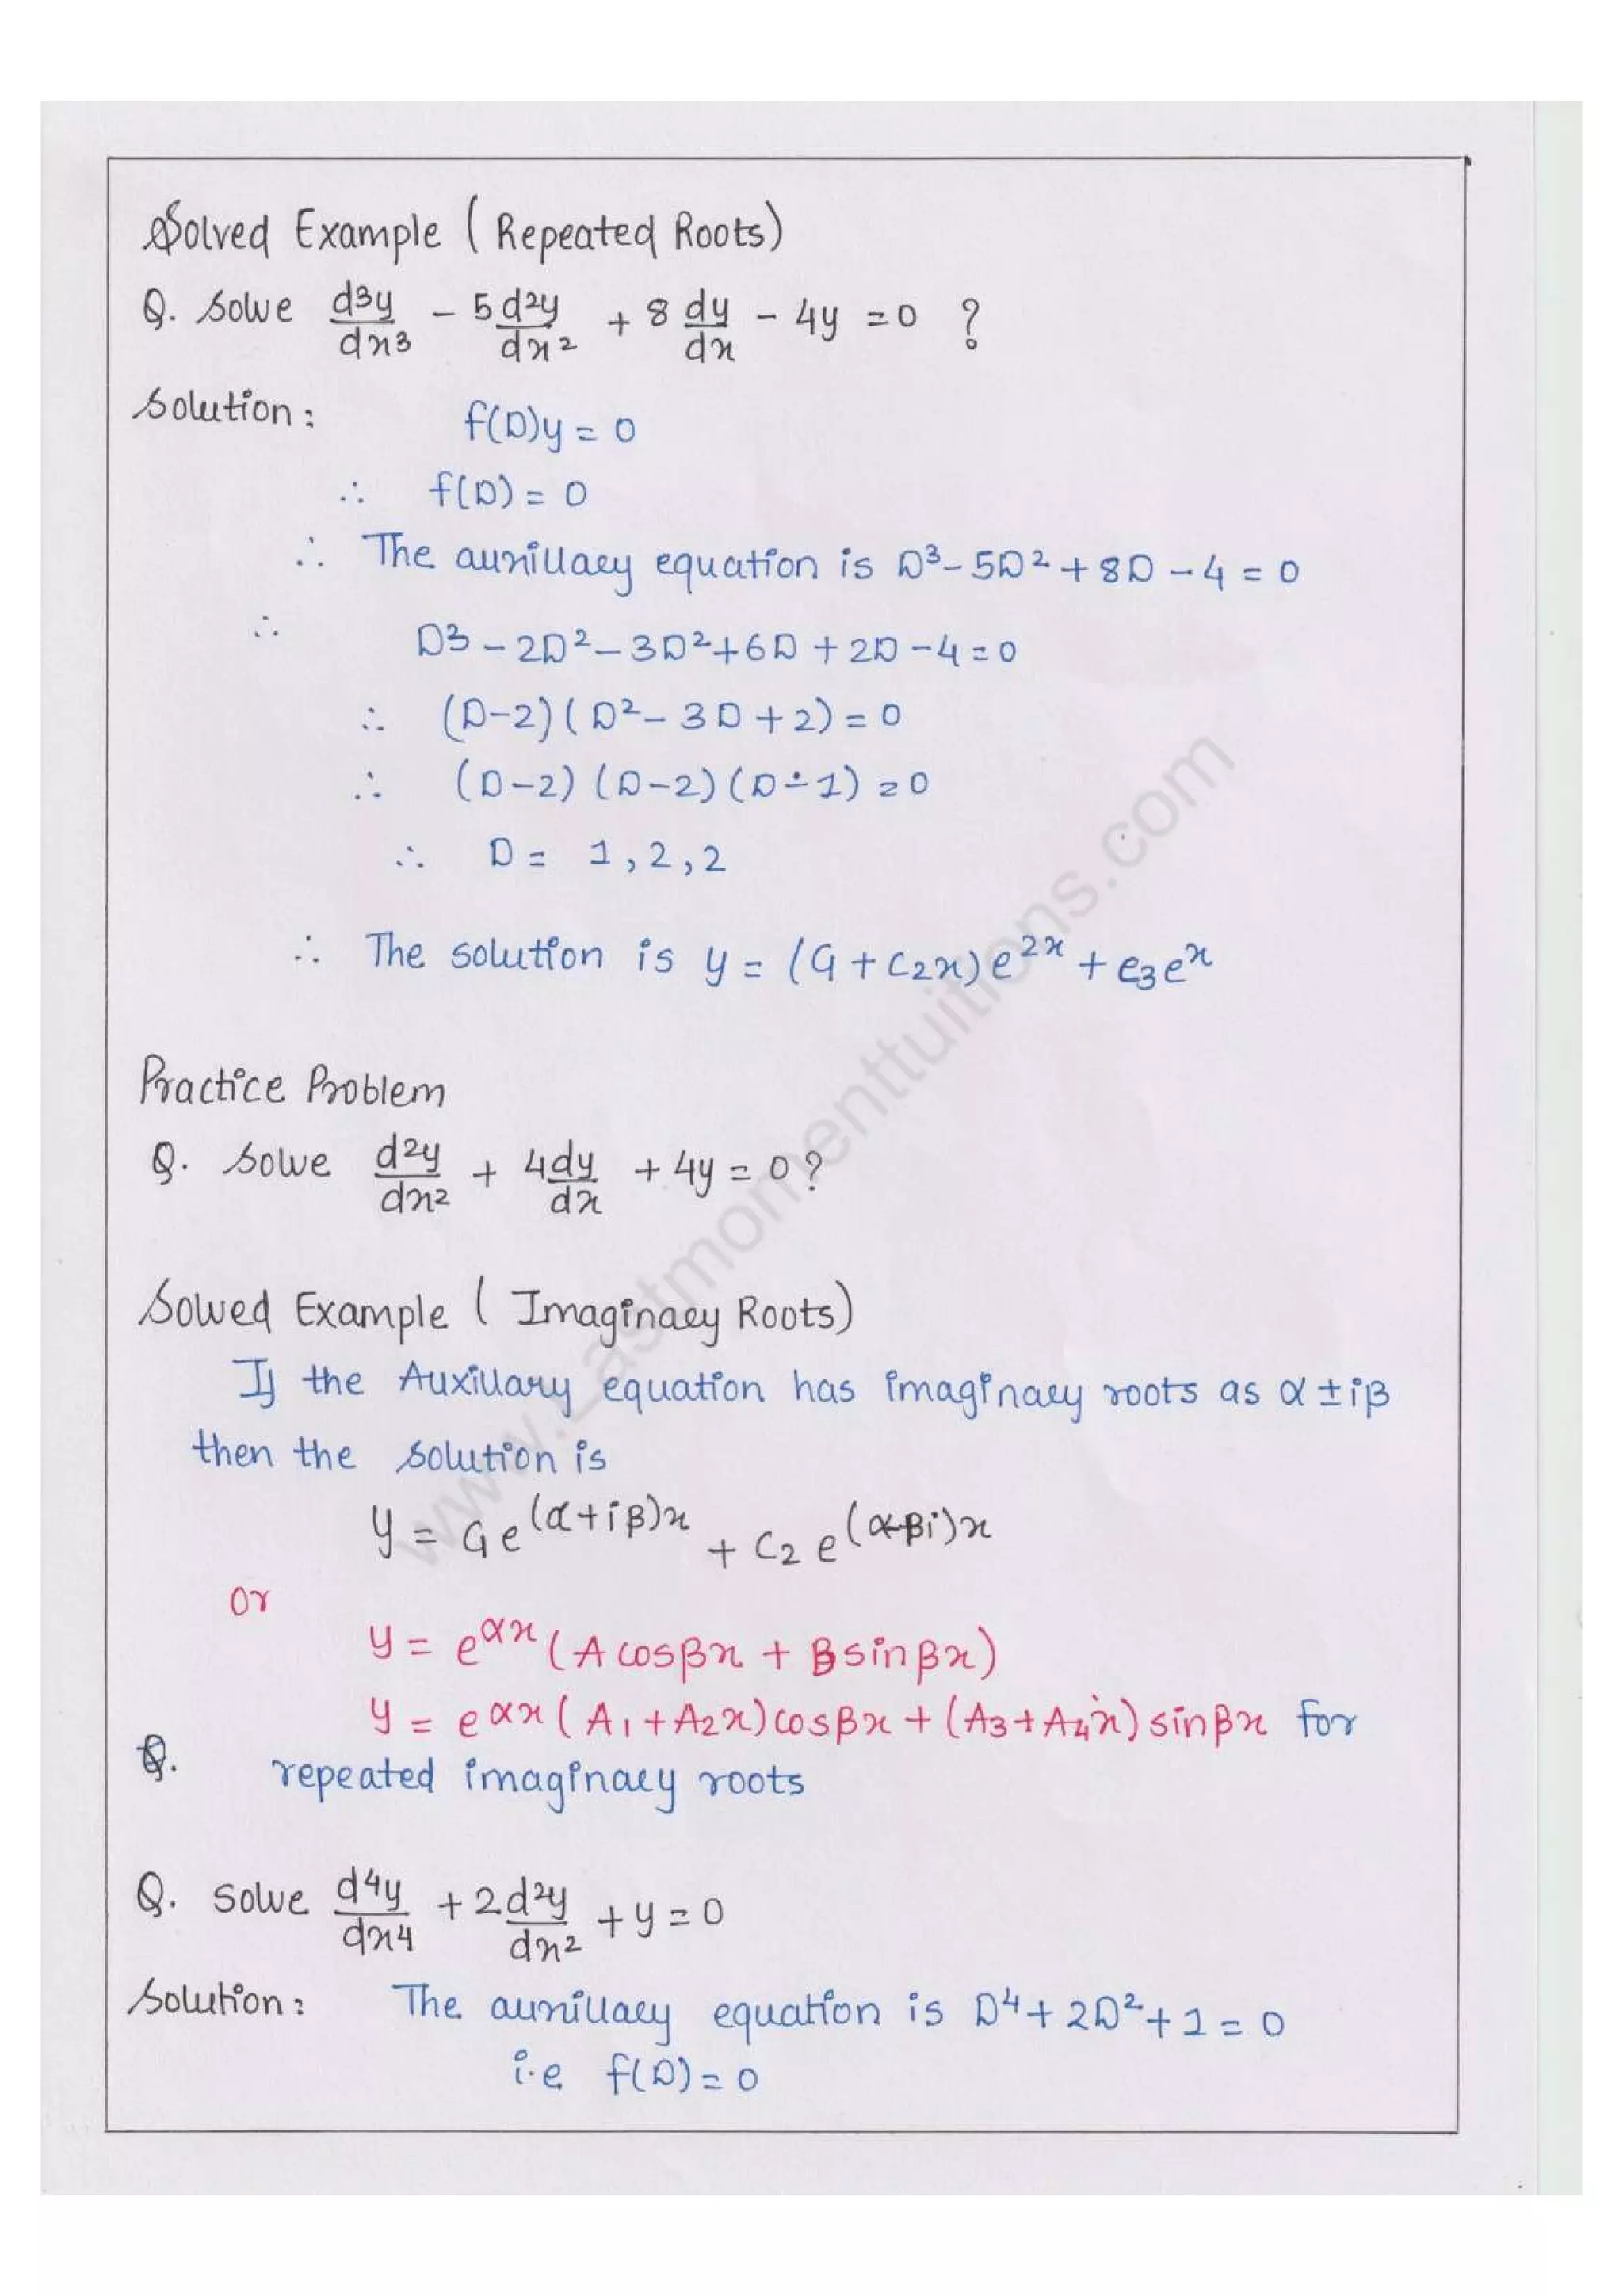 Solved Example ( Repeated Roots)
Q. Solve d³y/dx³ - 5d²y/dx² + 8 dy/dx - 4y = 0 ?
Solution : f(D)y = 0
∴ f(D) = 0
∴ The auxillary equation is D³ - 5D² + 8D - 4 = 0
∴ D³ - 2D² - 3D² + 6D + 2D - 4 = 0
∴ (D-2) ( D² - 3D + 2) = 0
∴ (D-2) (D-2) (D-1) = 0
∴ D = 1,2,2
∴ The solution is y = (C₁ + C₂x)e²ˣ + c₃eˣ
Practice Problem
Q. Solve d²y/dx² + 4dy/dx + 4y = 0 ?
Solved Example ( Imaginary Roots)
If the Auxillary equation has imaginary roots as α ± iβ
then the solution is
y = C₁ e^(α+iβ)x + C₂ e^(α-βi)x
or
y = e^αx (A cosβx + B sinβx)
y = e^αx ( A₁ + A₂x) cosβx + (A₃ + A₄x) sinβx for
Q. repeated imaginary roots
Q. Solve d⁴y/dx⁴ + 2d²y/dx² + y = 0
Solution : The auxillary equation is D⁴ + 2D² + 1 = 0
i.e f(D) = 0
www.Lastmomenttuitions.com